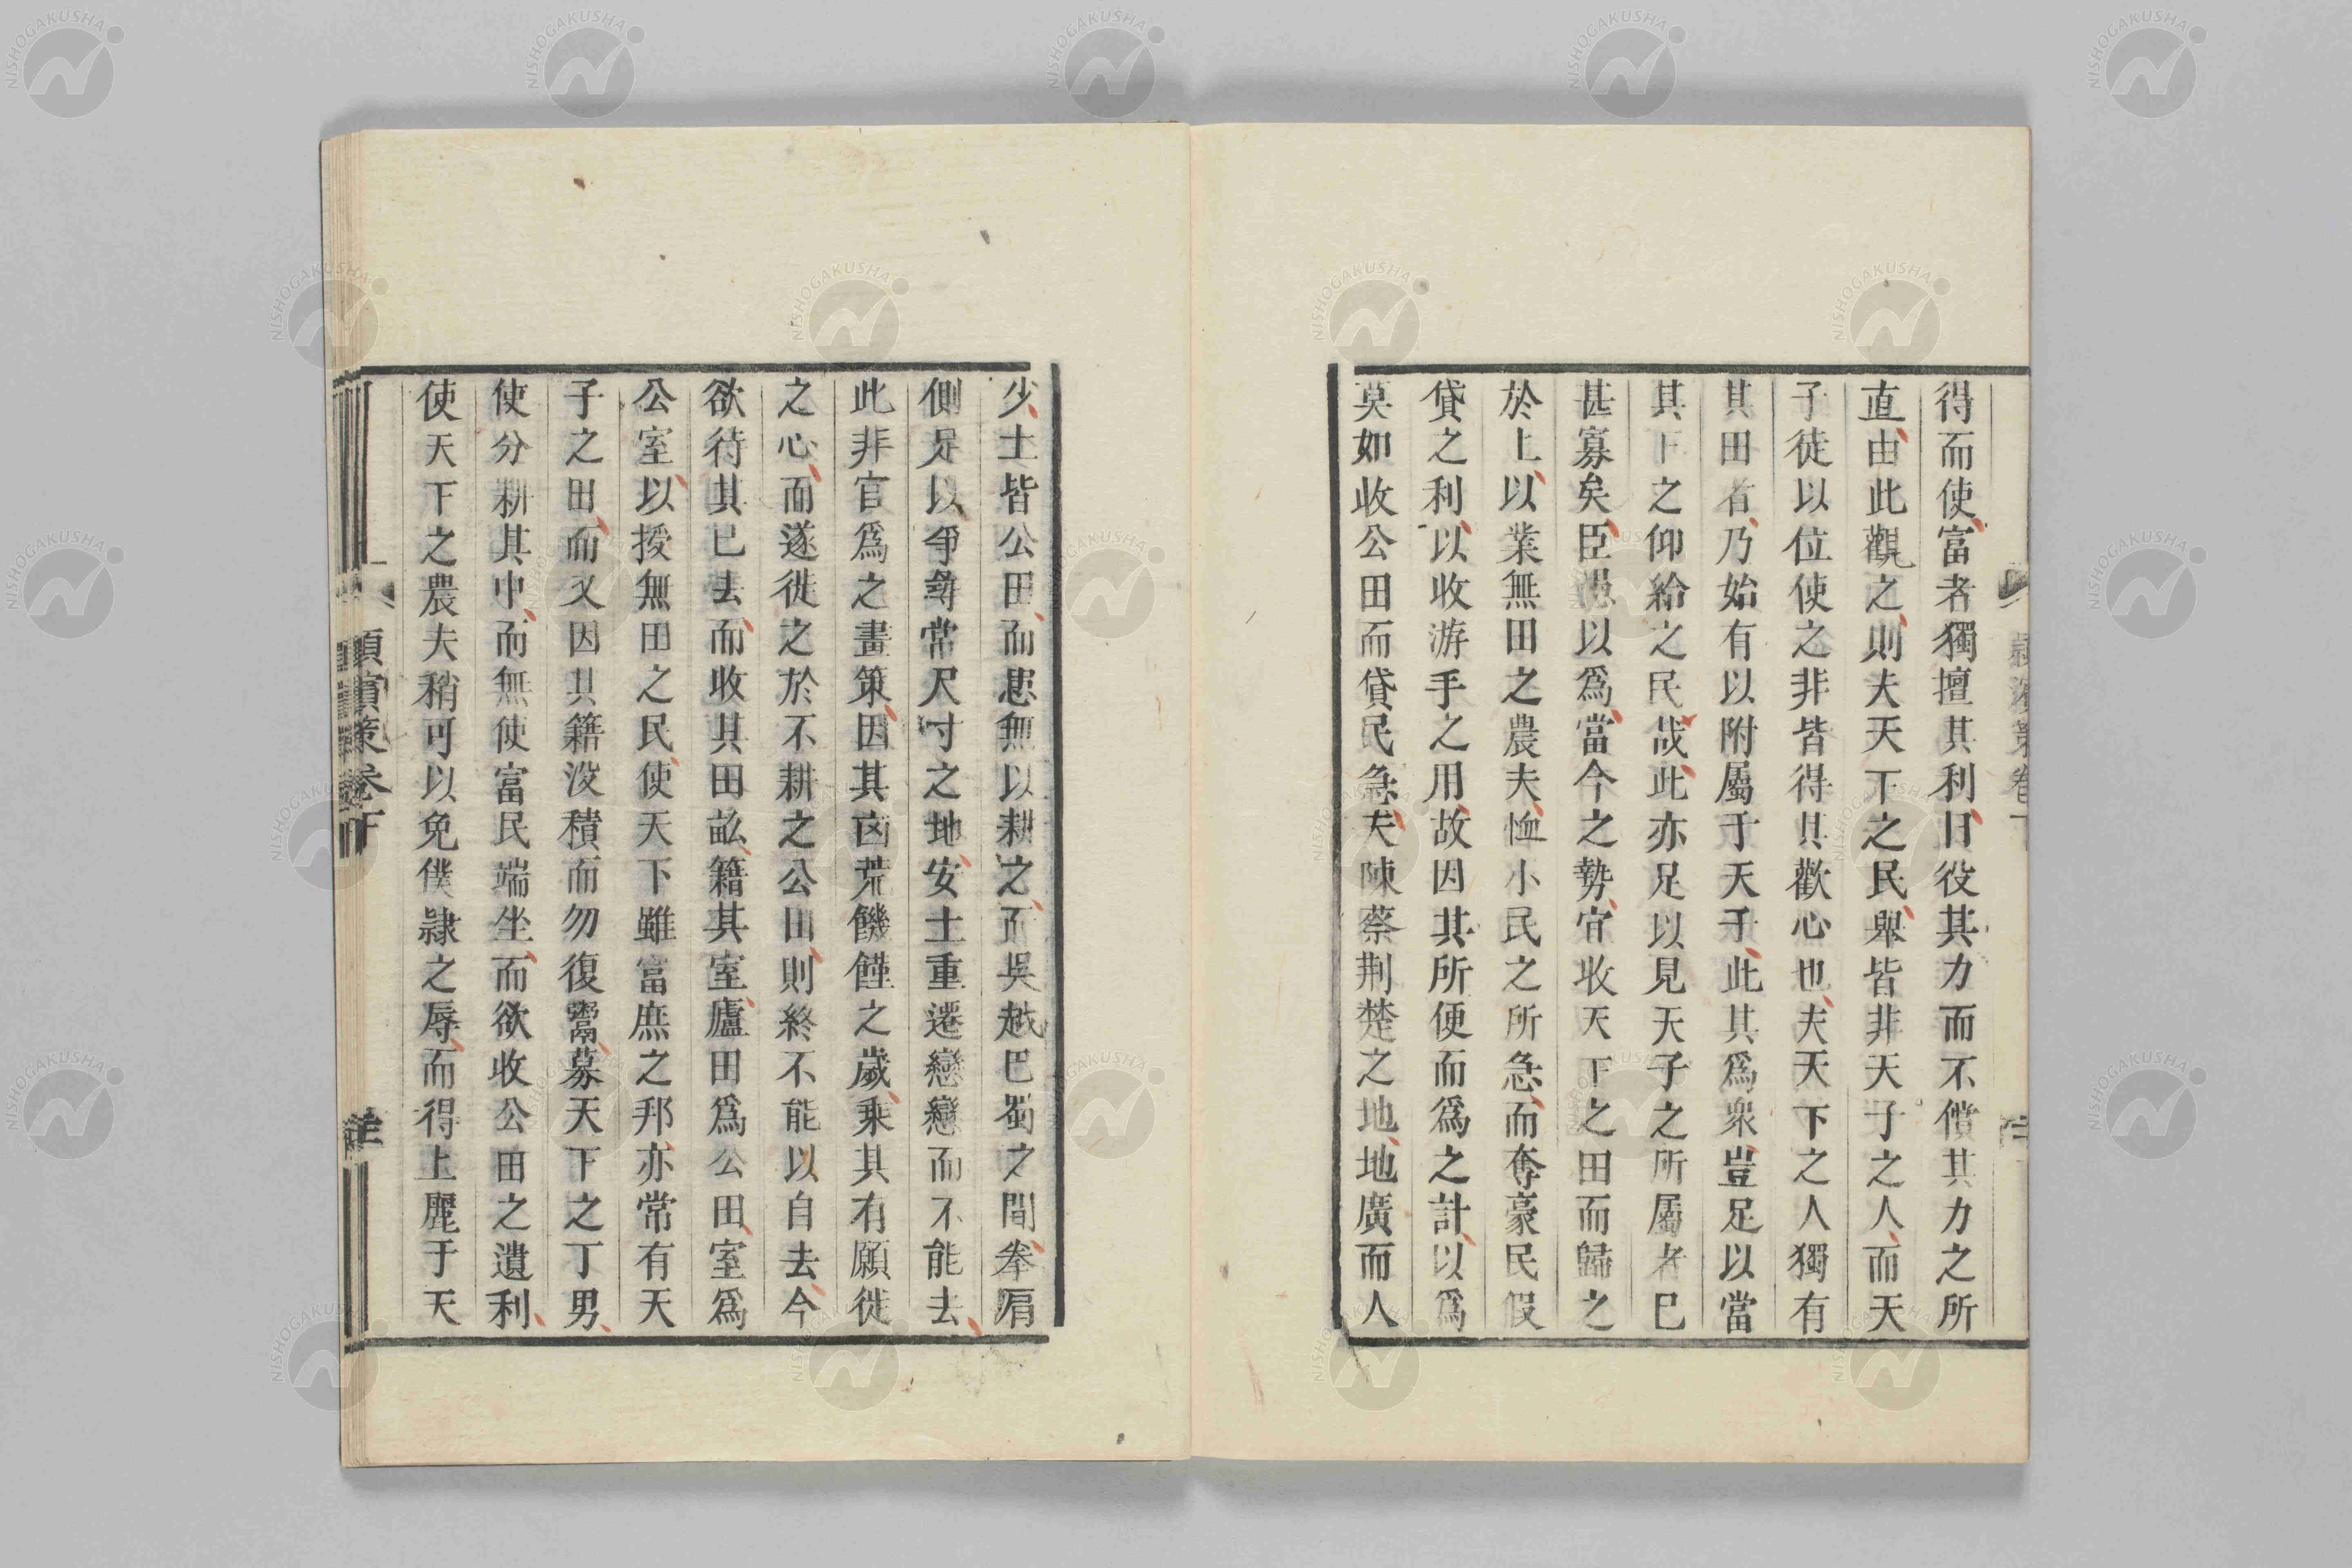 得而使富者獨擅其利日役其力而不償其力之所
直由此觀之則夫天下之民舉皆非天子之人而天
子徒以位使之非皆得其歡心也夫天下之人獨有
其田者乃始有以附屬于天子此其爲衆豈足以當
其下之仰給之民哉此亦足以見天子之所屬者已
甚寡矣臣愚以爲當今之勢宜收天下之田而歸之
於上以業無田之農夫恤小民之所急而奪豪民假
貸之利以收游手之用故因其所便而爲之計以爲
莫如收公田而貸民急夫陳蔡荆楚之地地廣而人
少土皆公田而患無以耕之而吳越巴蜀之間拳肩
側足以爭尋常尺寸之地安土重遷戀戀而不能去
此非官爲之畫策因其凶荒饑饉之歲乘其有願徙
之心而遂徙之於不耕之公田則終不能以自去今
欲待其已去而收其田畝籍其室廬田爲公田室爲
公室以授無田之民使天下雖富庶之邦亦常有天
子之田而又因其籍没積而勿復鬻募天下之丁男
使分耕其中而無使富民端坐而欲收公田之遺利
使天下之農夫稍可以免僕隷之辱而得上麗于天
穎濱策卷下
NISHOGAKUSHA